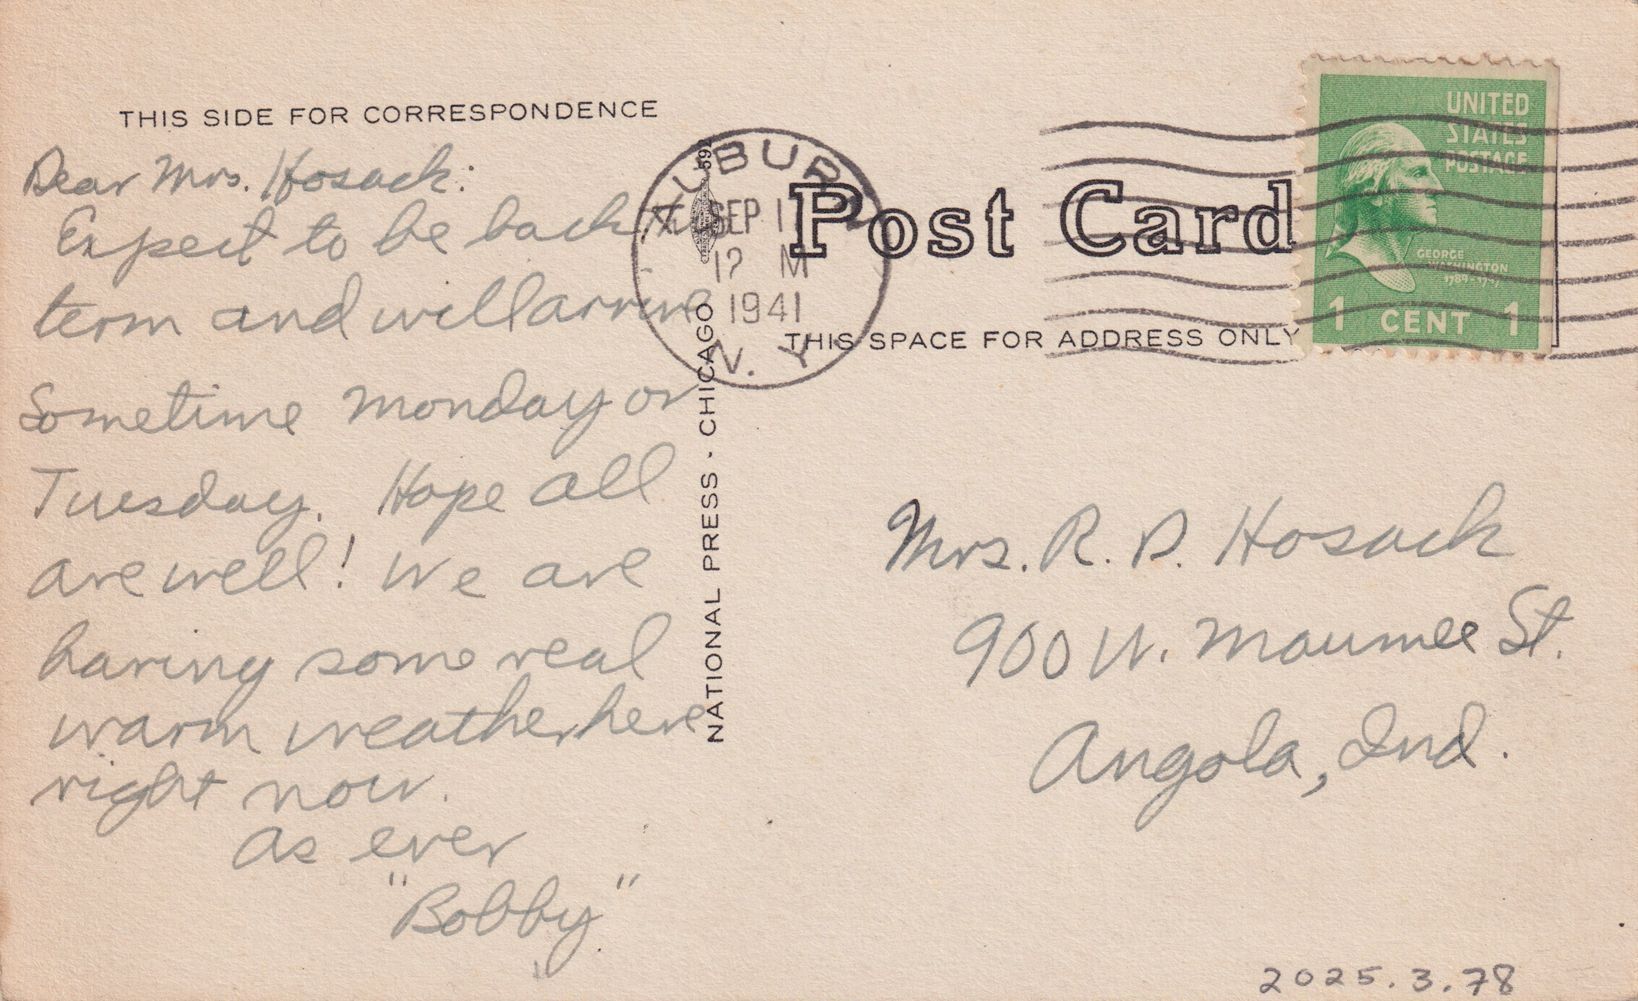 THIS SIDE FOR CORRESPONDENCE
Dear Mrs. Hosack:
Expect to be back
term and will arrive
Sometime Monday or
Tuesday. Hope all
are well! We are
having some real
warm weather here
right now.
As ever
"Bobby"
NATIONAL PRESS · CHICAGO
AUBURN
SEP 1
12 M
1941
N. Y.
Post Card
THIS SPACE FOR ADDRESS ONLY
UNITED
STATES
POSTAGE
GEORGE
WASHINGTON
1 CENT 1
Mrs. R. D. Hosack
900 W. Maumee St.
Angola, Ind.
2025.3.78